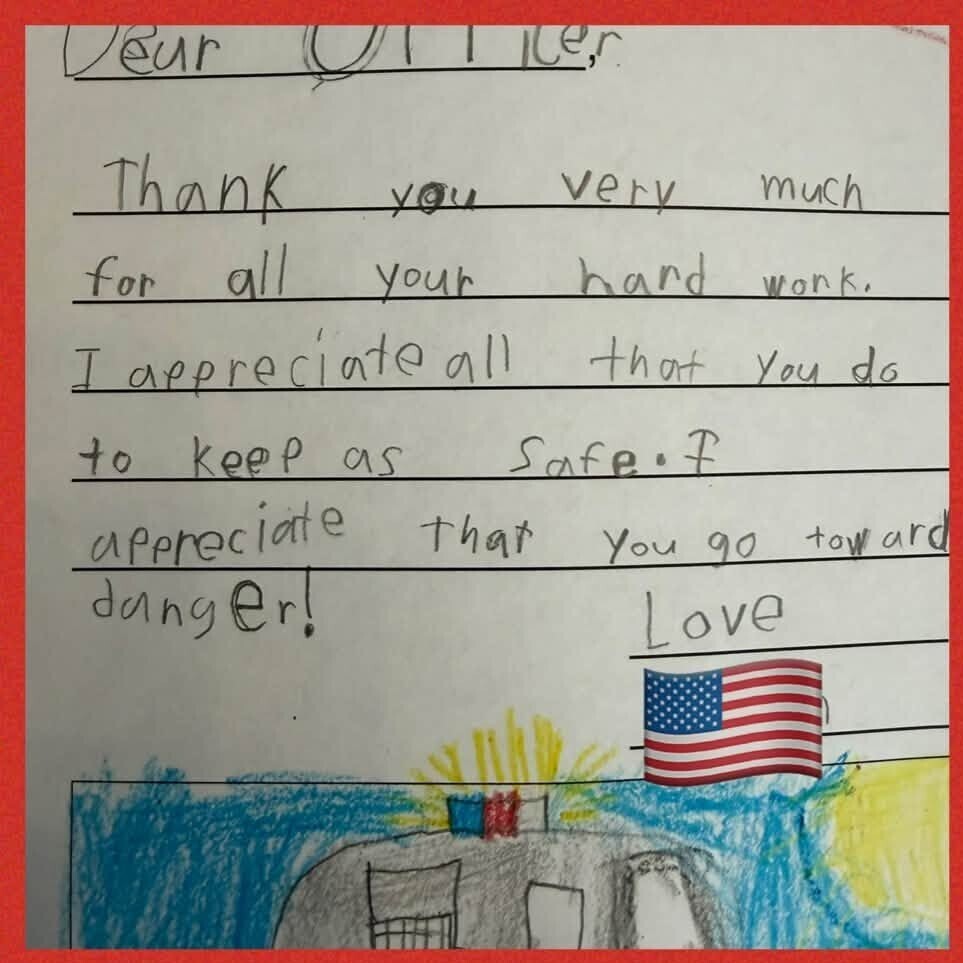 Dear Officer,
Thank you very much
for all your hard work.
I appreciate all that you do
to keep as safe. I
appreciate that you go toward
danger!
Love